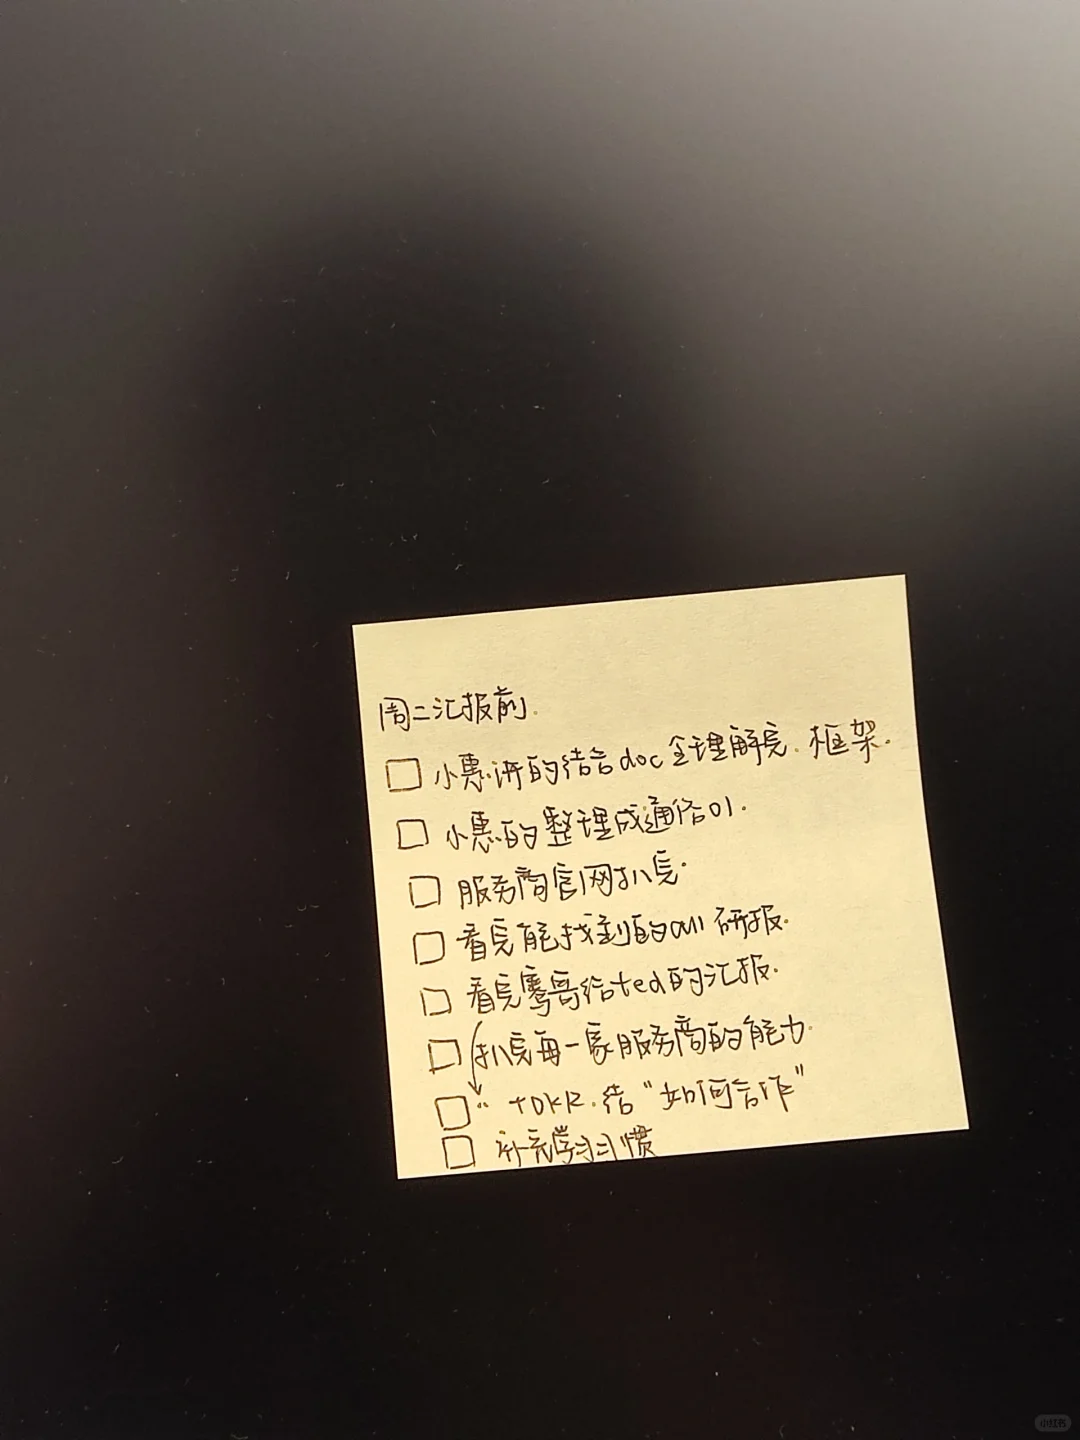 周二汇报前.
小惠讲的结合doc全理解完.框架.
小惠的整理成通俗01.
服务商官网扒完.
看完能找到的all研报.
看完鹭哥给ted的汇报.
扒完每一家服务商的能力.
" +OKR.结"如何合作"
补充学习习惯
小红书